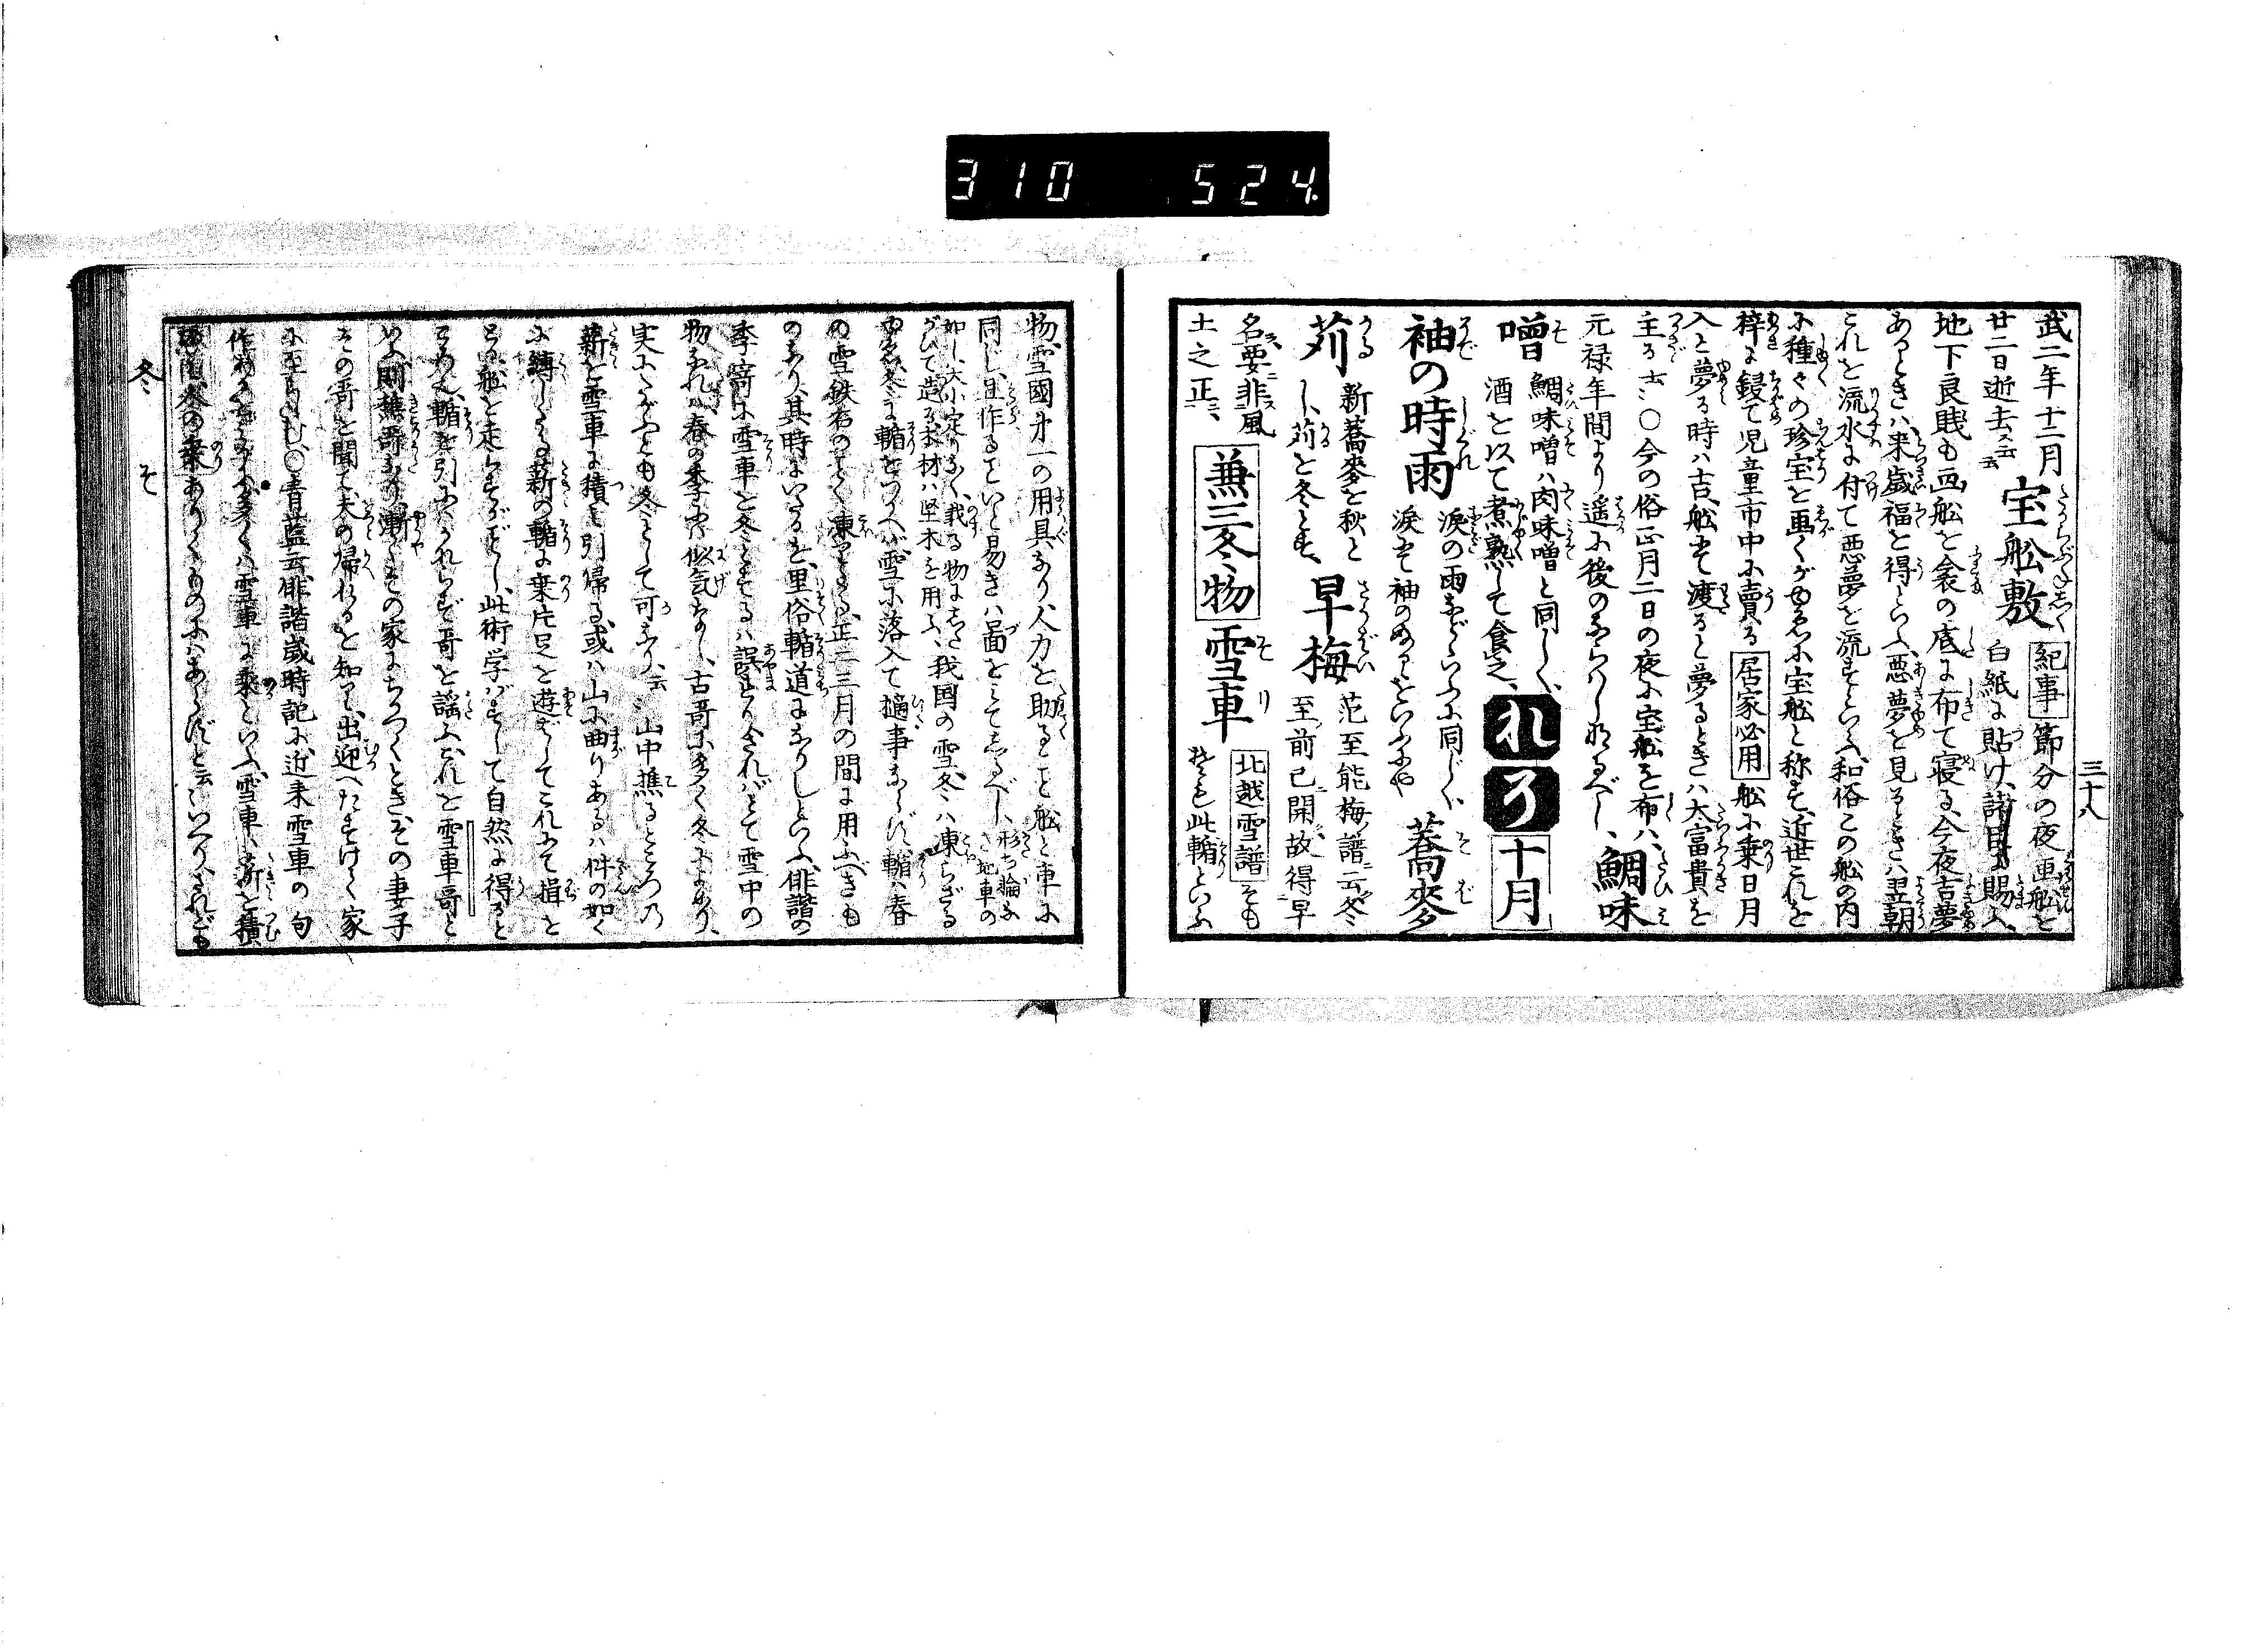 310 524
三十八
武二年十二月
廿二日逝去云云
宝舩敷
紀事 節分の夜画舩を
白紙に貼け、諸臣に賜ふ、
地下良賤も画舩を衾の底に布て寝る、今夜吉夢
あるときハ来歳福を得るといふ、悪夢を見るときハ翌朝
これを流水に付て悪夢を流すといふ、和俗この舩の内
に種々の珍宝を画くがゆゑに宝舩と称す、近世これを
梓に鋟て児童市中に賣る 居家必用 舩に乗日月
入と夢る時ハ吉、舩にて渡ると夢るときハ大富貴を
主る云云○今の俗正月二日の夜に宝舩を布ハ、
元禄年間より遥に後のならハしなるべし、鯛味
噌 鯛味噌ハ肉味噌と同しく、
酒を以て煮熟して食之、
れ そ 十月
袖の時雨 涙の雨などいふに同じく、
涙にて袖のぬるゝをいふにや
蕎麥
苅 新蕎麥を秋と
し、苅を冬とす、
早梅 范至能梅譜云冬
至前已開故得早
名要非風
土之正、
兼三冬物 雪車 北越雪譜 そも
〱此轌といふ
物、雪國第一の用具なり、人力を助ること舩と車に
同じ、且作るにいと易きハ圖を見てしるべし、形ち
如し、大小定りなく、載る物にしたがひて造る、
材ハ堅木を用ふ、我国の雪、冬ハ凍らざる
ゆゑ、冬に轌をつかへバ雪に落入て
の雪鉄石のごとく凍りたる、正二三月の間に用ふべきも
のなり、其時にいたるを、里俗轌道になりしといふ、俳諧の
季寄に雪車を冬とするハ誤れり、されバとて雪中の
物なれバ春の季にハ似気なし、古哥に多く冬によめり、
実にハたがへども冬として可なり云云、山中樵るところの
薪を雪車に積て引帰る、或ハ山に曲りあるハ件の如く
に縛したる薪の轌に乗、片足を遊ばしてこれにて揖を
とり、舩を走らすがごとし、此術学バずして自然に得ると
轌を引にハかならず哥を謡ふ、これを雪車哥と
いふ、則樵哥なり、漸くその家にちかづくとき、その妻子
その哥を聞て、夫の帰れるを知り、出迎へたすけて家
に至らしむ、○青藍云、俳諧歳時記に、近来雪車の句
作れるを見るに、多くハ雪車に乗といふ、雪車ハ薪を積
乗ありくものにハあらずと云云といへり、されども
冬 そ